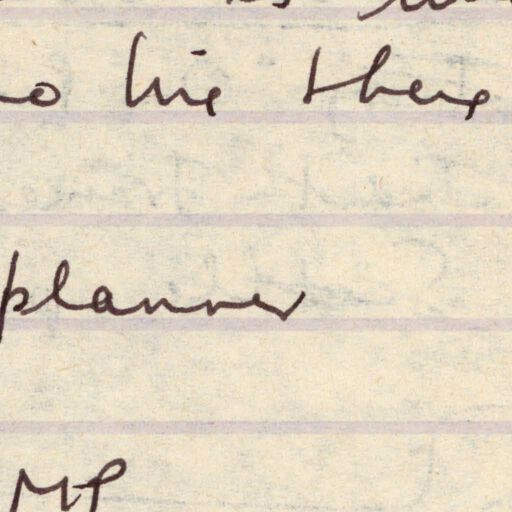 live there
planner
MP